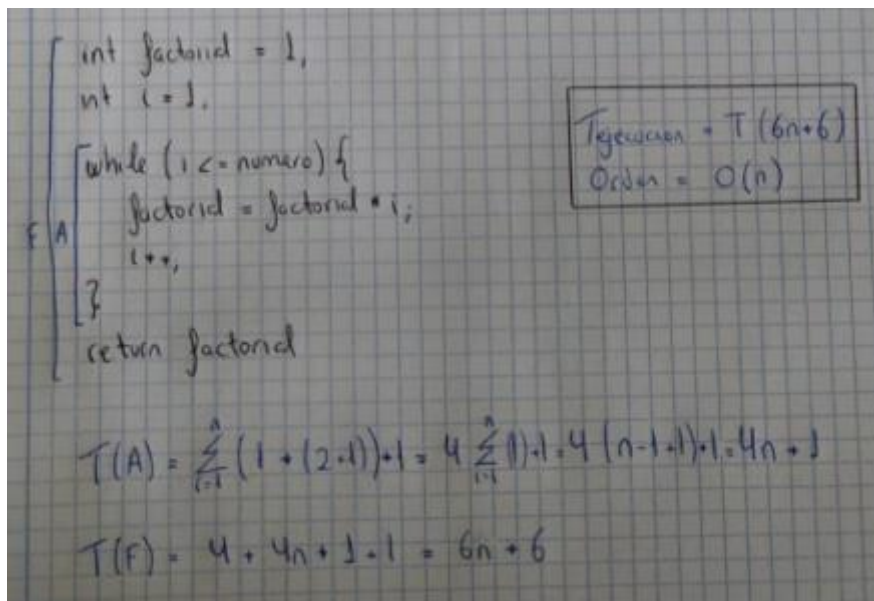 int factorial = 1;
int i = 1;
while (i <= numero) {
factorial = factorial * i;
i++;
}
return factorial
F
A
Tejecucion = T(6n+6)
Orden = O(n)
T(A) = n∑i=1 (1 + (2+1))+1 = 4 n∑i=1 (1)+1 = 4 (n-1+1)+1 = 4n + 1
T(F) = 4 + 4n + 1 + 1 = 6n + 6